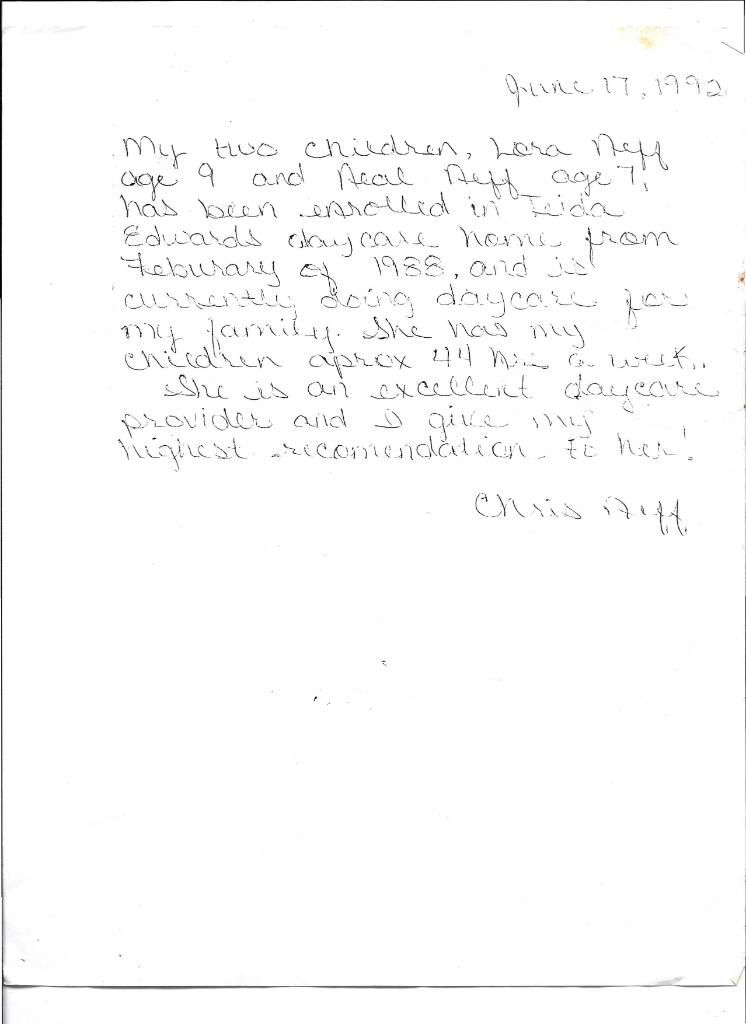 June 17, 1992
My two children, Lora Neff
age 9 and Neal Neff age 7,
has been enrolled in
Edwards daycare home from
Feburary of 1988, and is
currently doing daycare for
my family. She has my
children aprox 44 hrs a week.
She is an excellent daycare
provider and I give my
highest recomendation to her!
Chris Neff